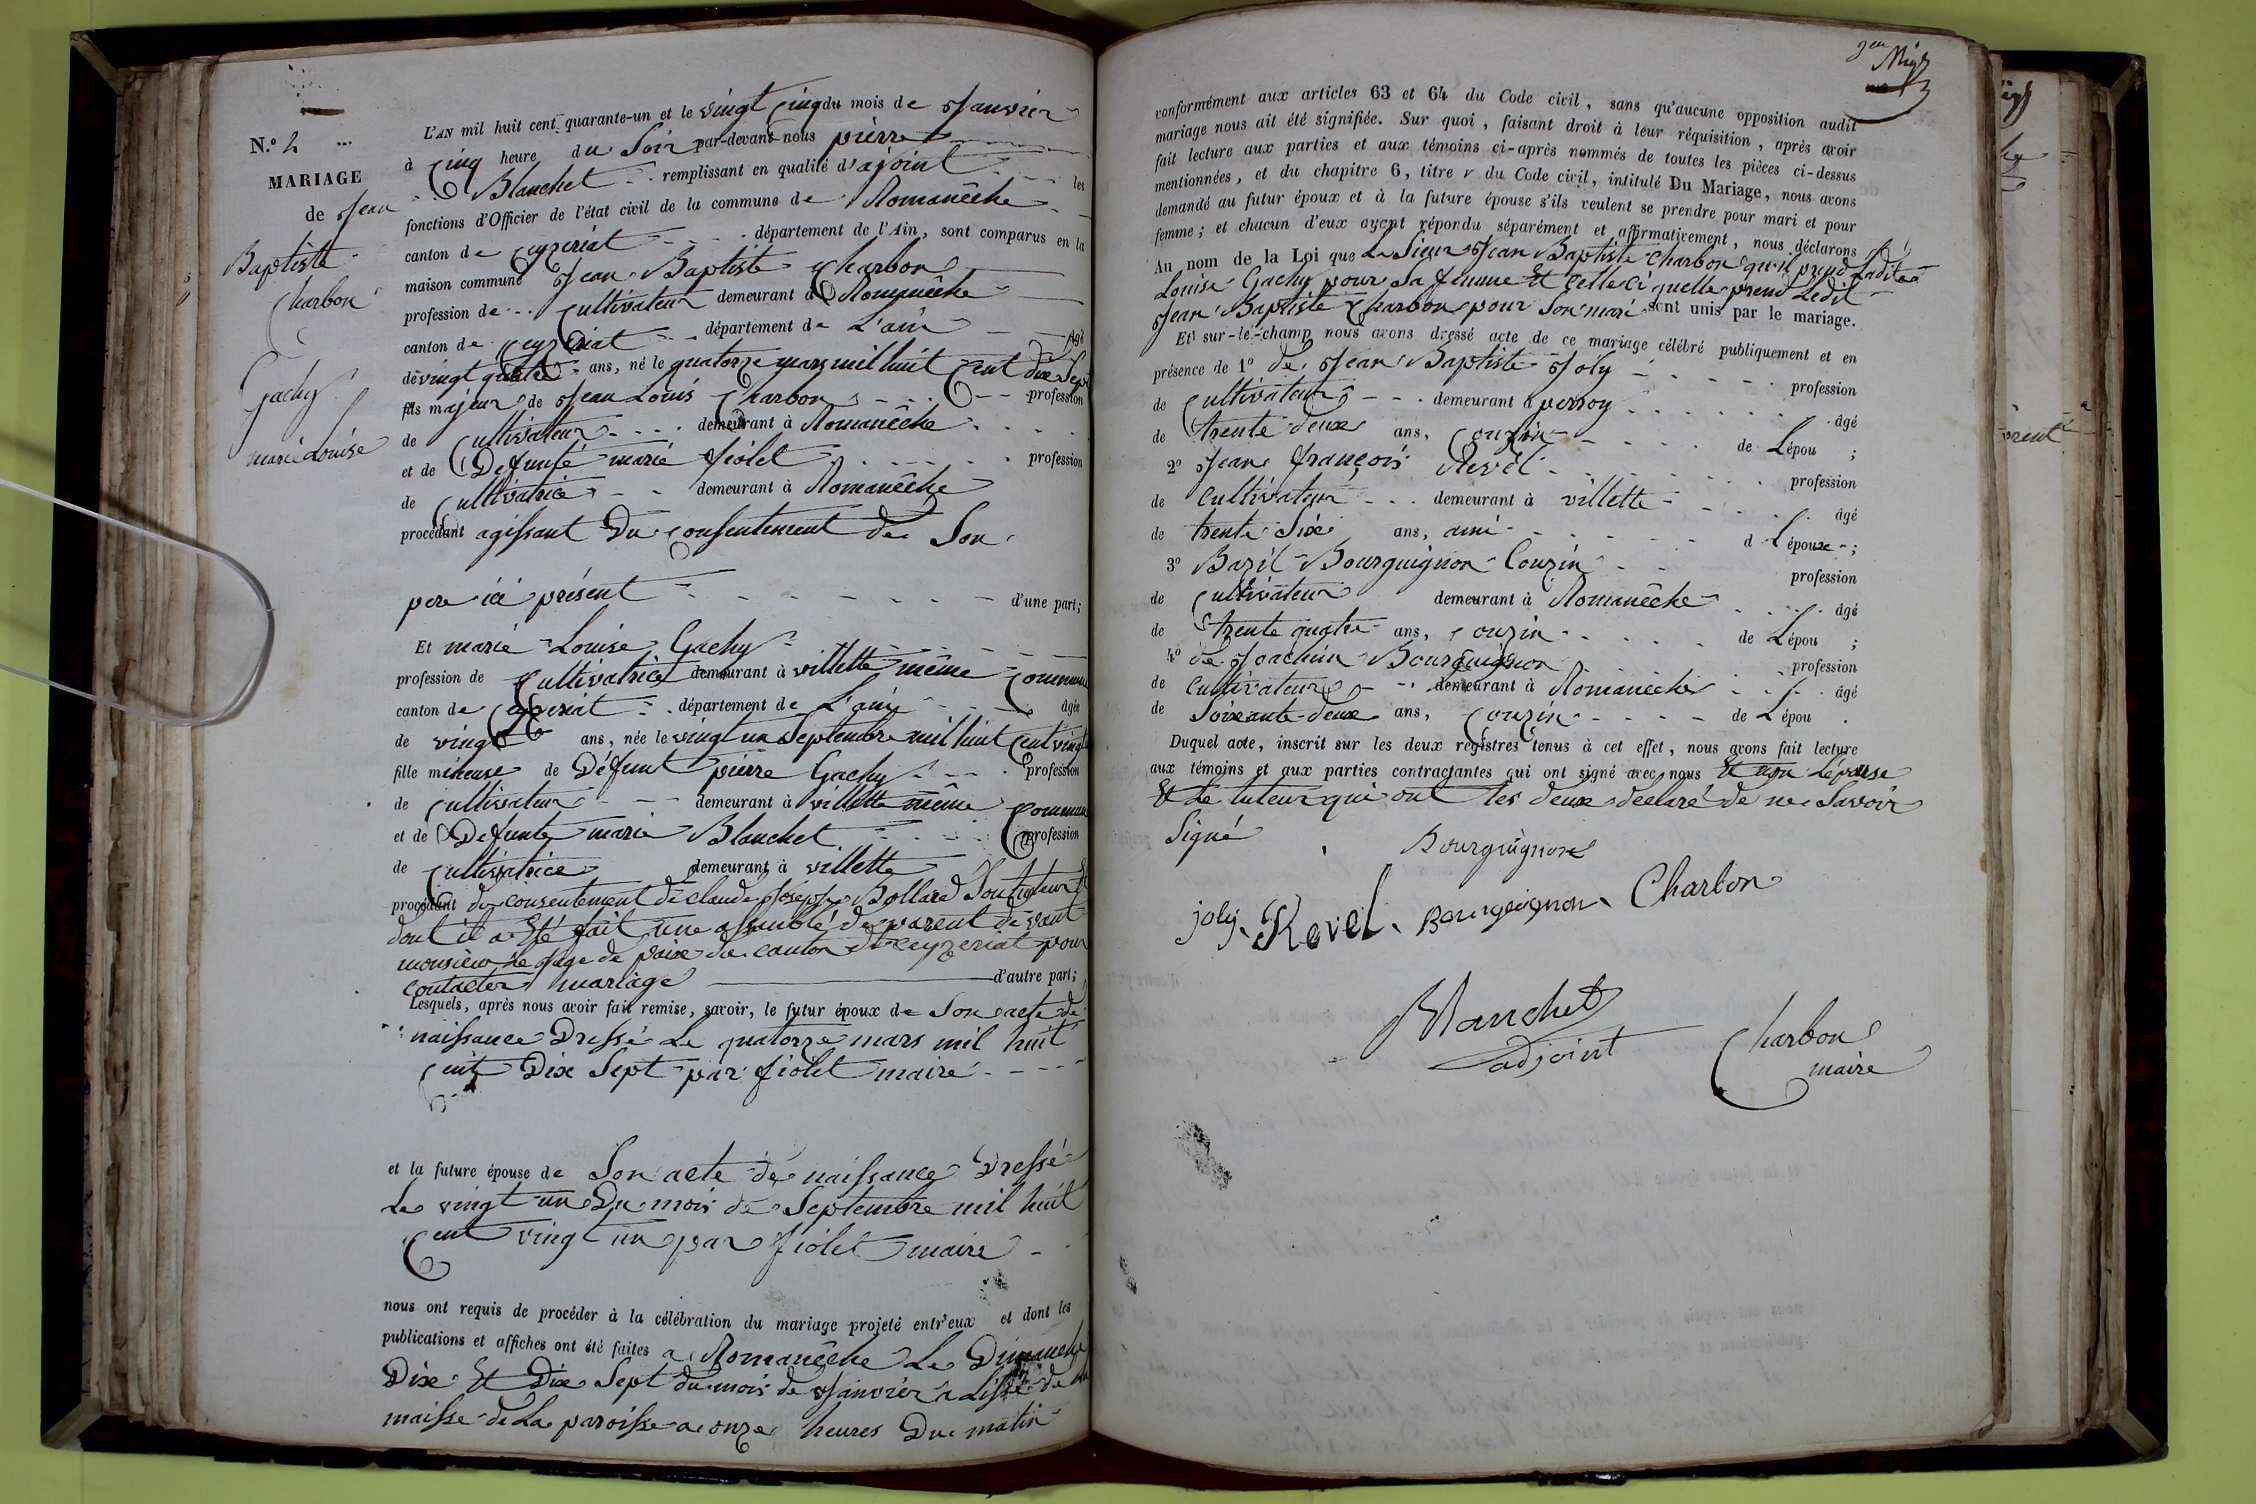 N.º 2
MARIAGE
de Jean
Baptiste
Charbon
Gachy
marie Louise
L'AN mil huit cent quarante-un et le vingt cinq du mois de Janvier
à Cinq heure du Soir par-devant nous pierre
Blanchet remplissant en qualité d'ajoint les
fonctions d'Officier de l'état civil de la commune de Romanêche
canton de Ceyzeriat département de l'Ain, sont comparus en la
maison commune Jean Baptiste Charbon
profession de Cultivateur demeurant à Romanêche
canton de Ceyzeriat département de L'ain Agé
de vingt quatre ans, né le quatorze mars mil huit Cent dix Sept
fils majeur de Jean Louis Charbon profession
de Cultivateur demeurant à Romanêche
et de Defunte marie fiolet profession
de Cultivatrice demeurant à Romanêche
procédant agissant Du Consentement de Son
pere ici présent d'une part;
Et marie Louise Gachy
profession de Cultivatrice demeurant à villette même Commune
canton de Ceyzeriat département de L'ain âgée
de vingt ans, née le vingt un Septembre mil huit Cent vingt
fille mineuse de Défunt pierre Gachy profession
de Cultivateur demeurant à villette même Commune
et de Defunte marie Blanchet profession
de Cultivatrice demeurant à villette
procédant du consentement de Claude Joseph Bollard Son tuteur Et
dont il a Eté fait une assemblé de parent devant
monsieur le Juge de paix du canton de Ceyzeriat pour
contacter mariage d'autre part;
Lesquels, après nous avoir fait remise, savoir, le futur époux de Son acte de
naissance Dressé Le quatorze mars mil huit
Cent Dix Sept par fiolet maire
et la future épouse de Son acte de naissance Dressé
Le vingt un Du mois de Septembre mil huit
Cent vingt un par fiolet maire
nous ont requis de procéder à la célébration du mariage projeté entr'eux et dont les
publications et affiches ont été faites a Romanêche Le Dimanche
Dix Et Dix Sept du mois de Janvier a Lissue de la
maisse de La paroisse a onze heures Du matin
conformément aux articles 63 et 64 du Code civil, sans qu'aucune opposition audit
mariage nous ait été signifiée. Sur quoi, faisant droit à leur réquisition, après avoir
fait lecture aux parties et aux témoins ci-après nommés de toutes les pièces ci-dessus
mentionnées, et du chapitre 6, titre v du Code civil, intitulé Du Mariage, nous avons
demandé au futur époux et à la future épouse s'ils veulent se prendre pour mari et pour
femme; et chacun d'eux ayant répondu séparément et affirmativement, nous déclarons
Au nom de la Loi que Le Sieur Jean Baptiste Charbon qu'il prend Ladite
Louise Gachy pour Sa femme Et Celle ci quelle prend Ledit
Jean Baptiste Charbon pour Son mari sont unis par le mariage.
Et sur-le-champ nous avons dressé acte de ce mariage célébré publiquement et en
présence de 1º de Jean Baptiste Joly profession
de Cultivateur demeurant à perroy âgé
de trente deux ans, Couzin de L'épou ;
2º Jean françois Revel profession
de Cultivateur demeurant à villette âgé
de trente Six ans, ami d L'épouse ;
3º Bazil Bourguignon Couzin profession
de Cultivateur demeurant à Romanêche âgé
de trente quatre ans, Couzin de L'épou ;
4º de Joachim Bourguignon profession
de Cultivateur demeurant à Romanêche âgé
de Soixante deux ans, Couzin de L'épou .
Duquel acte, inscrit sur les deux registres tenus à cet effet, nous avons fait lecture
aux témoins et aux parties contractantes qui ont signé avec nous Et non L'épouse
Et Le tuteur qui ont les deux declaré de ne Savoir
Signé
Bourguignon
joly Revel Bourguignon Charbon
Blanchet
adjoint
Charbon
maire